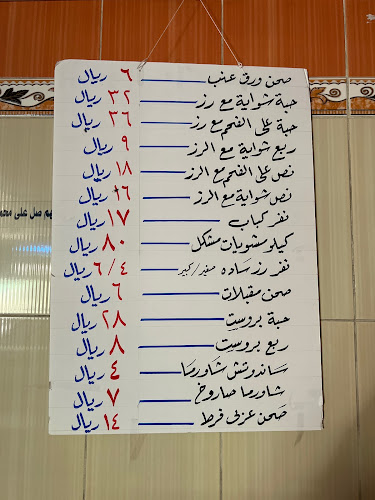 صحن ورق عنب ٦ ريال
حبة شواية مع رز ٣٢ ريال
حبة على الفحم مع رز ٣٦ ريال
ربع شواية مع الرز ٩ ريال
نص على الفحم مع الرز ١٨ ريال
نص شواية مع الرز ١٦ ريال
نفر كباب ١٧ ريال
كيلو مشويات مشكل ٨٠ ريال
نفر رز ساده صغير/كبير ٦/٤ ريال
صحن مقبلات ٦ ريال
حبة بروست ٢٨ ريال
ربع بروست ٨ ريال
ساندوتش شاورما ٤ ريال
شاورما صاروخ ٧ ريال
صحن عربي فرط ١٤ ريال
هم صل على محم